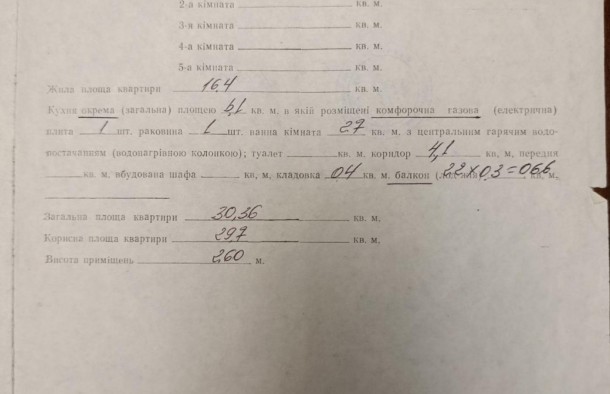 2-а кімната ____ кв. м.
3-я кімната ____ кв. м.
4-а кімната ____ кв. м.
5-а кімната ____ кв. м.
Жила площа квартири 16,4 кв. м.
Кухня окрема (загальна) площею 6,1 кв. м. в якій розміщені комфорочна газова (електрична)
плита 1 шт. раковина 1 шт. ванна кімната 2,7 кв. м. з центральним гарячим водо-
постачанням (водонагрівною колонкою); туалет ____ кв. м. коридор 4,1 кв, м, передня
____ кв. м. вбудована шафа ____ кв, м, кладовка 0,4 кв. м. балкон ( 2,2 х 0,3 = 0,66 кв, м,
Загальна площа квартири 30,36 кв. м,
Корисна площа квартири 29,7 кв. м,
Висота приміщень 2,60 м.